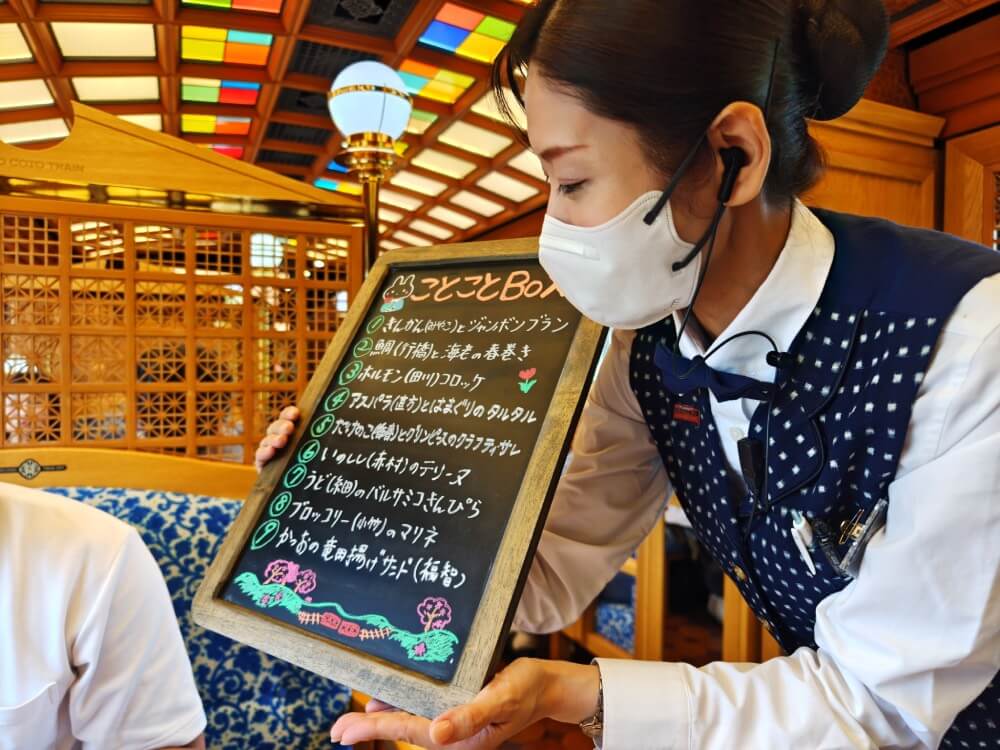 COTO TRAIN
ことことBox
①きんかん(みやこ)とジャンボンブラン
②鯛(行橋)と海老の春巻き
③ホルモン(田川)コロッケ
④アスパラ(直方)とはまぐりのタルタル
⑤たけのこ()とグリンピースのクラフティサレ
⑥いのしし(赤村)のテリーヌ
⑦うど(糸田)のバルサミコきんぴら
⑧ブロッコリー(小竹)のマリネ
⑨かつおの竜田揚げサンド(福智)